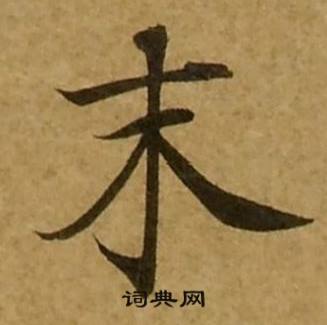 末
词典网